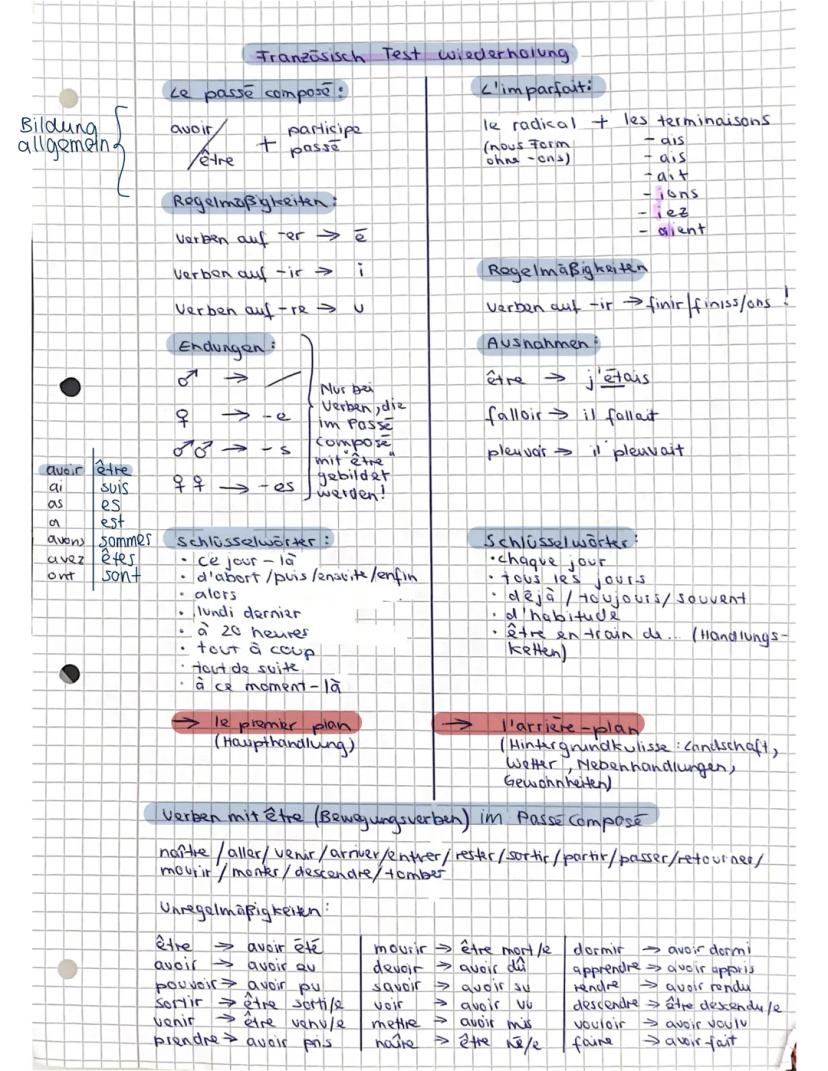 Französisch Test wiederholung
Le passé composé:
Bildung
allgemein
avoir/
/être
+
participe
passé
Regelmäßigkeiten:
Verben auf -er → é
Verben auf -ir → i
Verben auf -re → u
Endungen:
♂ → /
♀ → -e
♂♂ → -s
♀♀ → -es
Nur bei
Verben, die
im Passé
composé
mit "être"
gebildet
werden!
avoir être
ai suis
as es
a est
avons sommes
avez êtes
ont sont
Schlüsselwörter:
• ce jour-là
• d'abort/puis/ensuite/enfin
• alors
• lundi dernier
• à 20 heures
• tout à coup
• tout de suite
• à ce moment-là
→ le premier plan
(Haupthandlung)
L'imparfait:
le radical + les terminaisons
(nous Form
ohne -ons)
- ais
- ais
- ait
- ions
- iez
- aient
Regelmäßigkeiten
Verben auf -ir → finir/finiss/ons !
Ausnahmen:
être → j'étais
falloir → il fallait
pleuvoir → il pleuvait
Schlüsselwörter:
• chaque jour
• tous les jours
• déjà / toujours / souvent
• d'habitude
• être en train de... (Handlungs-
ketten)
→ l'arrière-plan
(Hintergrundkulisse: Landschaft,
Wetter, Nebenhandlungen,
Gewohnheiten)
Verben mit être (Bewegungsverben) im Passé Composé
naître / aller / venir / arriver / entrer / rester / sortir / partir / passer / retourner /
mourir / monter / descendre / tomber
Unregelmäßigkeiten:
être → avoir été
avoir → avoir eu
pouvoir → avoir pu
sortir → être sorti/e
venir → être venu/e
prendre → avoir pris
mourir → être mort/e
devoir → avoir dû
savoir → avoir su
voir → avoir vu
mettre → avoir mis
naître → être né/e
dormir → avoir dormi
apprendre → avoir appris
rendre → avoir rendu
descendre → être descendu/e
vouloir → avoir voulu
faire → avoir fait